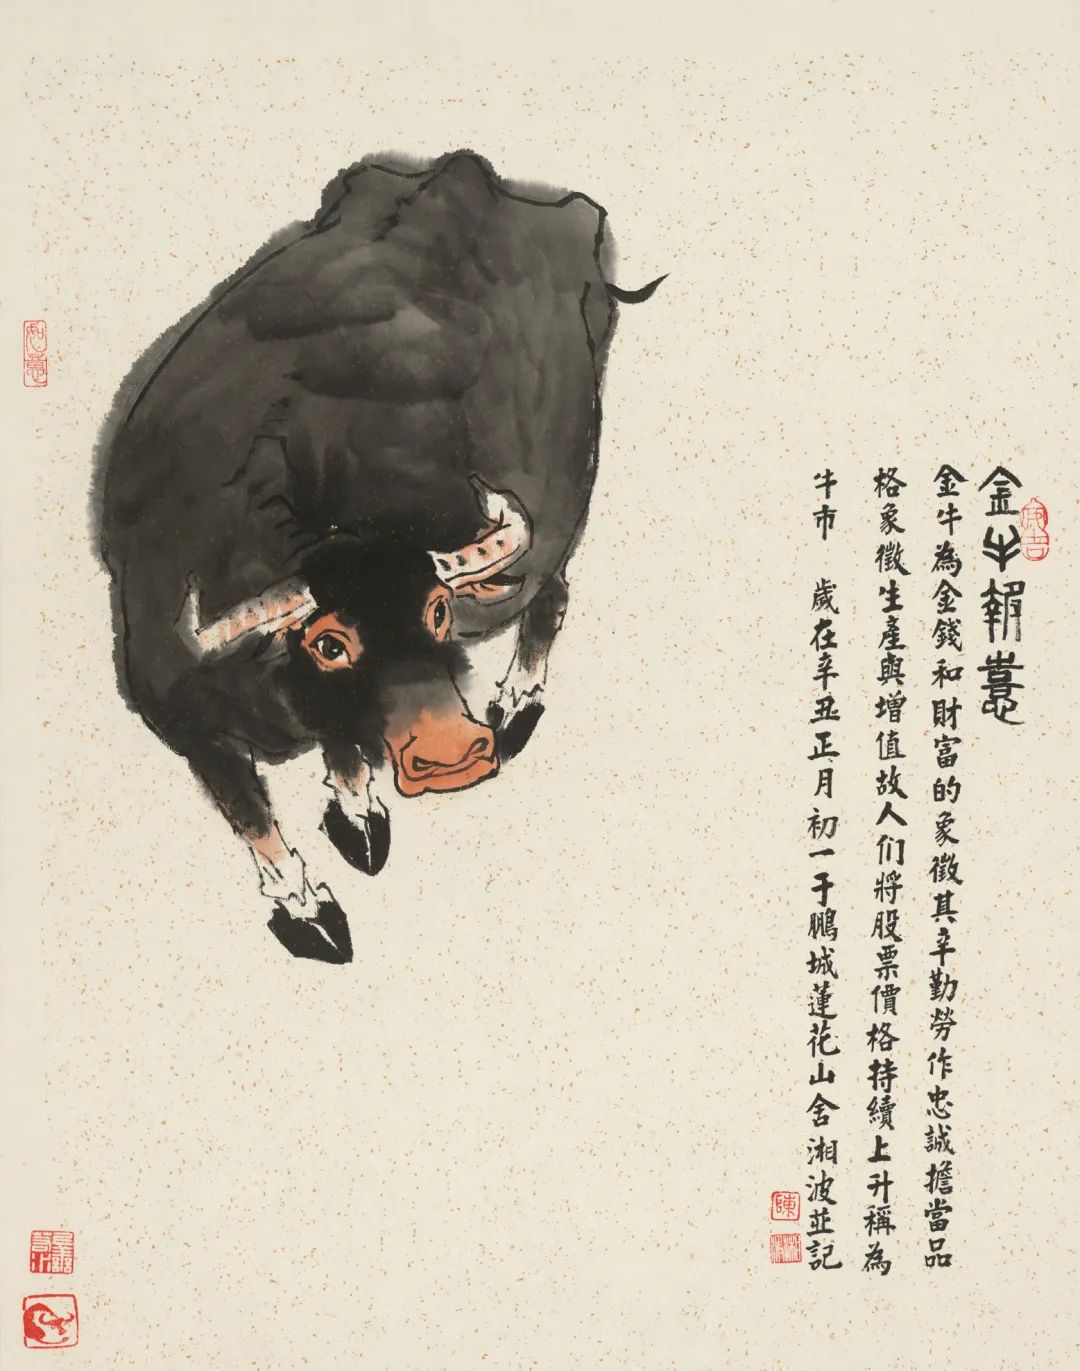 金牛報憙
金牛為金錢和財富的象徵其辛勤勞作忠誠擔當品
格象徵生產與增值故人们將股票價格持續上升稱為
牛市 歲在辛丑正月初一于鵬城蓮花山舍湘波並記
陳
湘波
如意